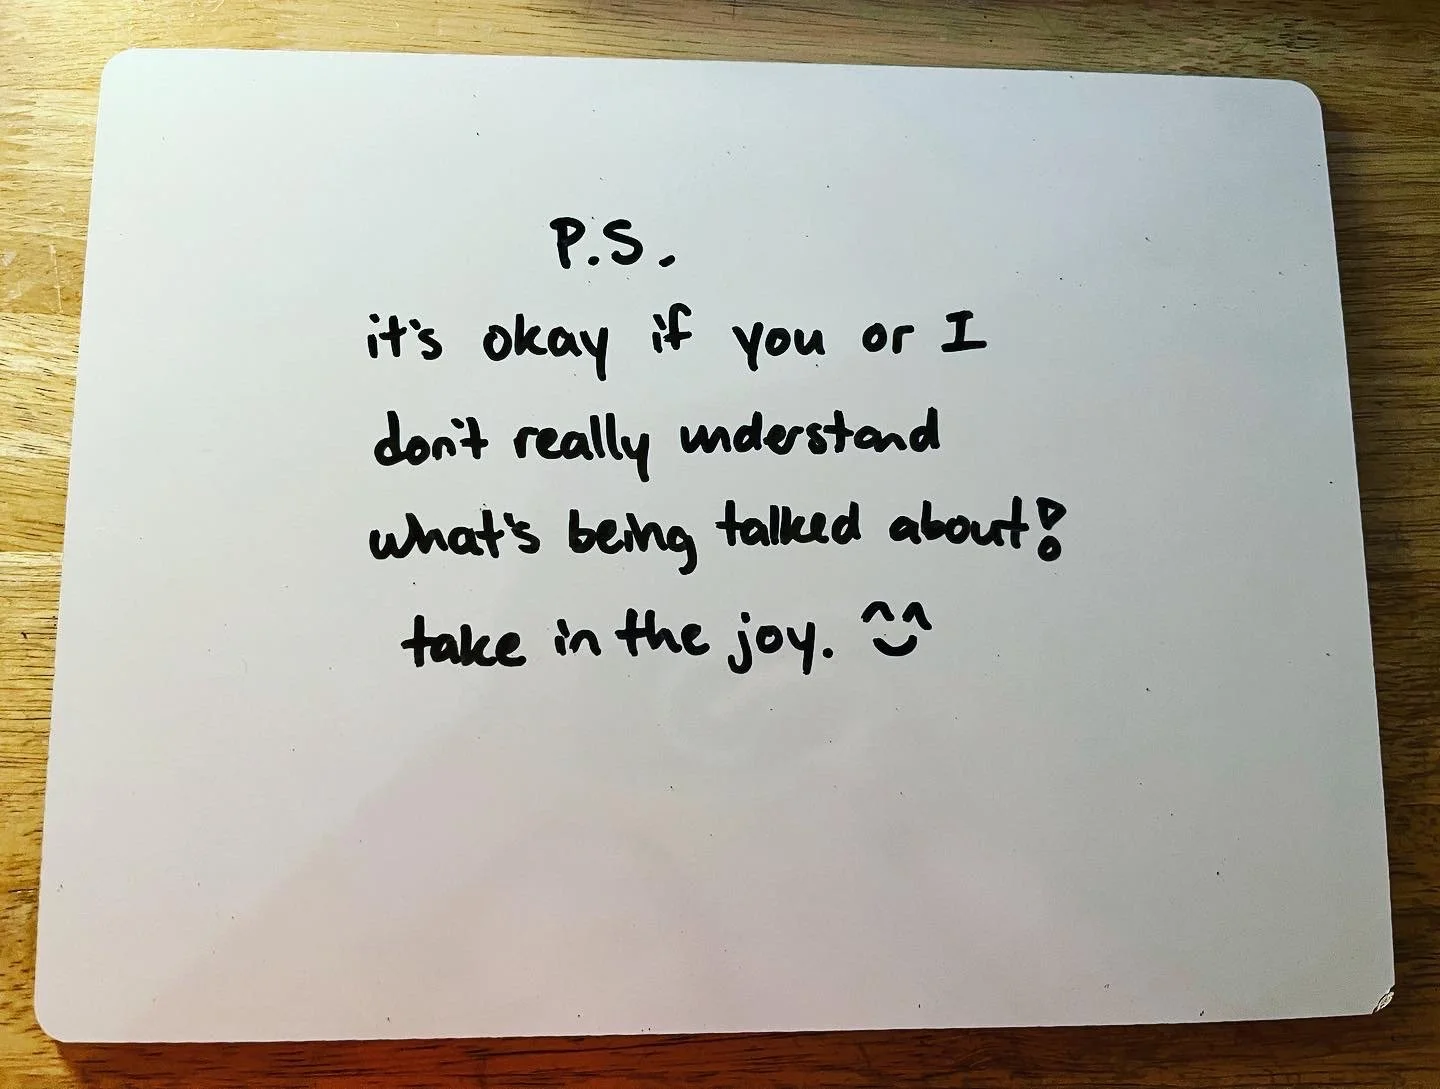 P.S.
it's okay if you or I
don't really understand
what's being talked about!
take in the joy. ^^